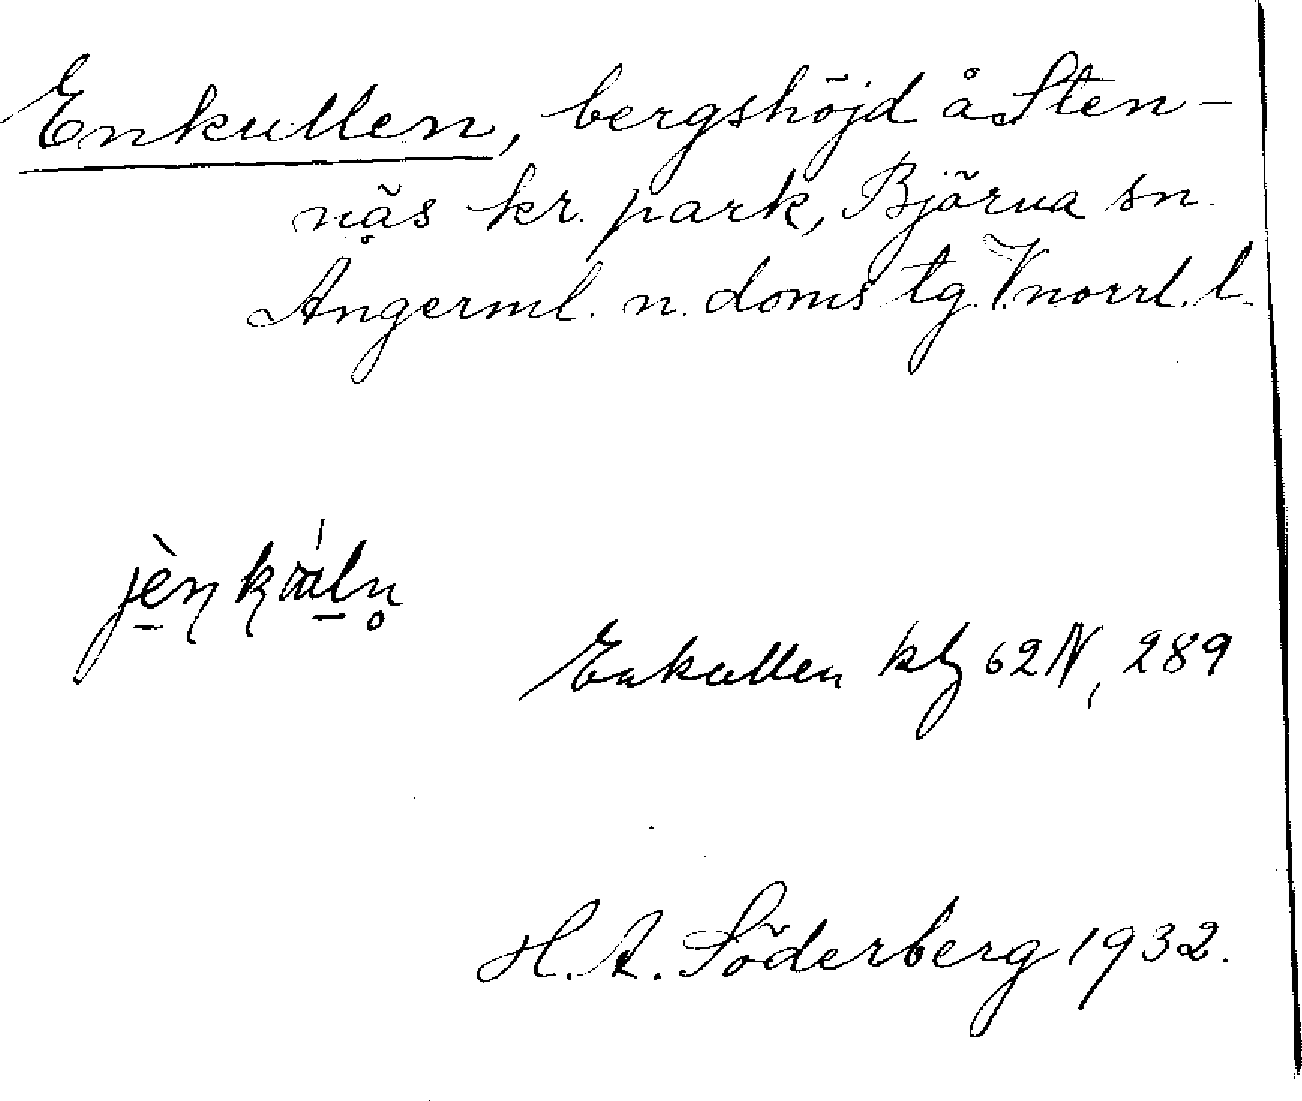 Enkullen, bergshöjd å Sten-
näs kr. park, Björna sn.
Ångerml. n. doms tg. Vnorrl. l.
Enkullen kbl 62 N, 289
H. A. Söderberg 1932.